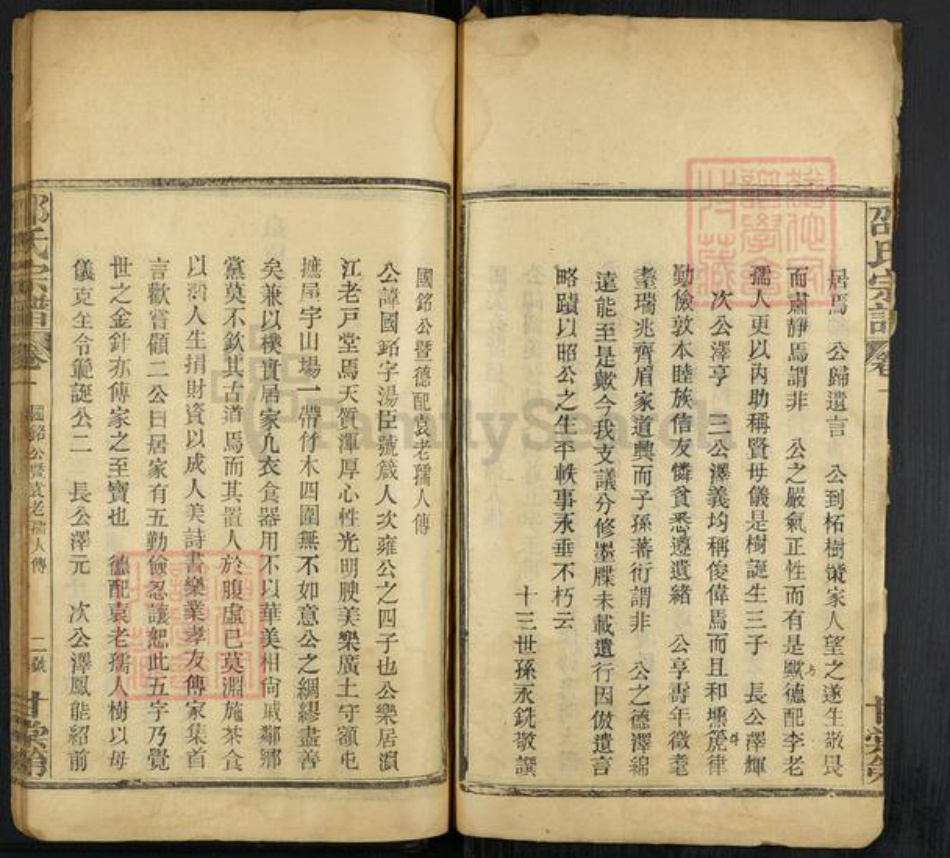 邵氏宗譜 卷一
甘棠第
居焉 公歸遺言 公到柘樹 家人望之遂生敬畏
而肅靜焉謂非 公之嚴氣正性而有是歟德配李老
孺人更以內助稱賢母儀是樹誕生三子 長公澤輝
次公澤亨 三公澤義均稱俊偉焉而且和壎箎律
勤儉敦本睦族信友憐貧悉遵遺緒 公亨壽年徵耄
耋瑞兆齊眉家道興而子孫蕃衍謂非 公之德澤綿
遠能至是歟今我支議分修墨牒未載遺行因倣遺言
略蹟以昭公之生平軼事永垂不朽云
十三世孫永銑敬譔
國銘公暨德配袁老孺人傳
公諱國銘字湯臣號箴人次雍公之四子也公樂居澬
江老戸堂焉天質渾厚心性光明腴美樂廣土守額屯
摭屋宇山場一帶竹木四圍無不如意公之綢繆盡善
矣兼以樸實居家凡衣食器用不以華美相尙戚鄰鄉
黨莫不欽其古道焉而其置人於腹虛己莫淵施茶食
以 人生捐財資以成人美詩書樂業孝友傳家集首
言歡嘗顧二公曰居家有五勤儉忍讓恕此五字乃覺
世之金針亦傳家之至寶也 德配袁老孺人樹以母
儀克全令範誕公二 長公澤元 次公澤鳳能紹前
邵氏宗譜 卷一
國銘公暨袁老孺人傳
二號
甘棠第
FamilySearch